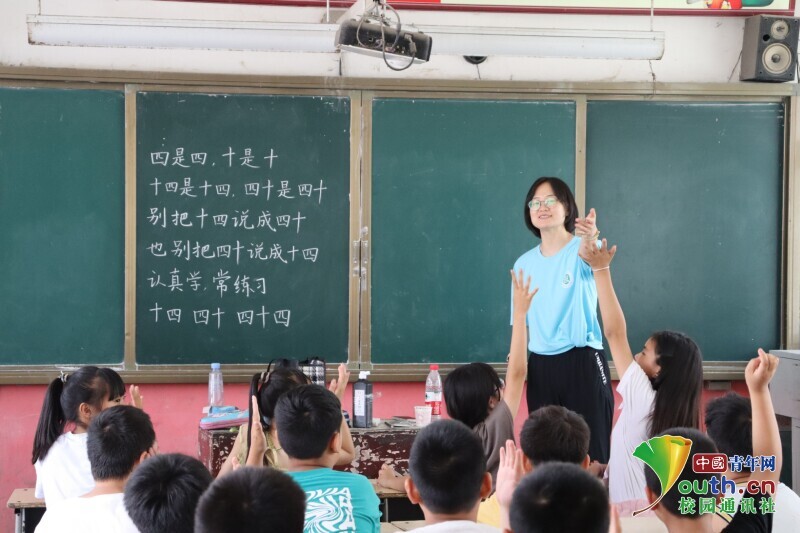 四是四,十是十
十四是十四,四十是四十
别把十四说成四十
也别把四十说成十四
认真学,常练习
十四 四十 四十四
中國青年网
youth.cn
校园通讯社